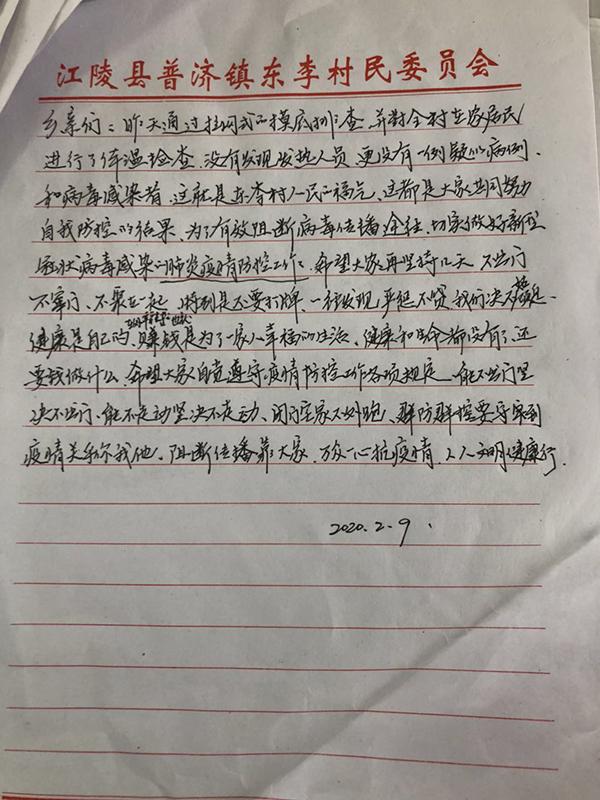 江陵县普济镇东李村民委员会
乡亲们：昨天通过拉网式的摸底排查，并对全村在家居民
进行了体温检查，没有发现发热人员，更没有一例疑似病例、
和病毒感染者，这就是东李村人民的福气，这都是大家共同努力
自我防控的结果、为了有效阻断病毒传播途径，切实做好新型
冠状病毒感染的肺炎疫情防控工作，希望大家再坚持几天，不出门
不串门、不聚在一起，特别是不要打牌、一经发现，严惩不贷，我们决不
健康是自己的，赚钱是为了一家人幸福的生活、健康和生命都没有了，还
要钱做什么，希望大家自觉遵守疫情防控工作各项规定，能不出门坚
决不出门、能不走动坚决不走动、闭门在家不外跑、群防群控要守牢
疫情关系你我他，阻断传播靠大家，万众一心抗疫情，人人文明健康行.
2020.2.9.